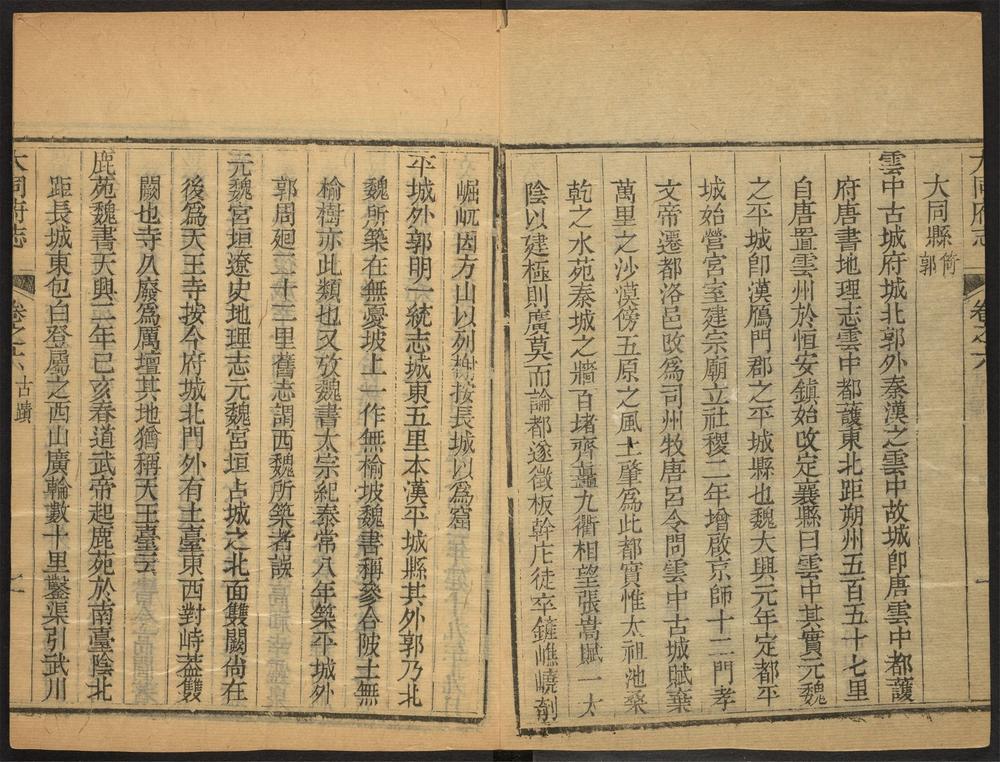 大同府志
卷之六
一
大同縣 附郭
雲中古城府城北郭外秦漢之雲中故城卽唐雲中都護
府唐書地理志雲中都護東北距朔州五百五十七里
自唐置雲州於恒安鎮始改定襄縣曰雲中其實元魏
之平城卽漢鴈門郡之平城縣也魏天興元年定都平
城始營宮室建宗廟立社稷二年增啟京師十二門孝
文帝遷都洛邑改爲司州牧唐呂令問雲中古城賦棄
萬里之沙漠傍五原之風土肇爲此都實惟太祖池桑
乾之水苑秦城之牆百堵齊矗九衢相望張嵩賦一太
陰以建極則廣莫而論都遂徵板幹庀徒卒鏟嶕嶢剷
崛屼因方山以列榭按長城以爲窟
平城外郭明一統志城東五里本漢平城縣其外郭乃北
魏所築在無憂坡上一作無榆坡魏書稱參合陂土無
榆樹亦此類也又攷魏書太宗紀泰常八年築平城外
郭周廻三十二里舊志謂西魏所築者誤
元魏宮垣遼史地理志元魏宮垣占城之北面雙闕尚在
後爲天王寺按今府城北門外有土臺東西對峙葢雙
闕也寺久廢爲厲壇其地猶稱天王臺云
鹿苑魏書天興二年己亥春道武帝起鹿苑於南臺陰北
距長城東包白登屬之西山廣輪數十里鑿渠引武川
大同府志
卷之六 古蹟
一